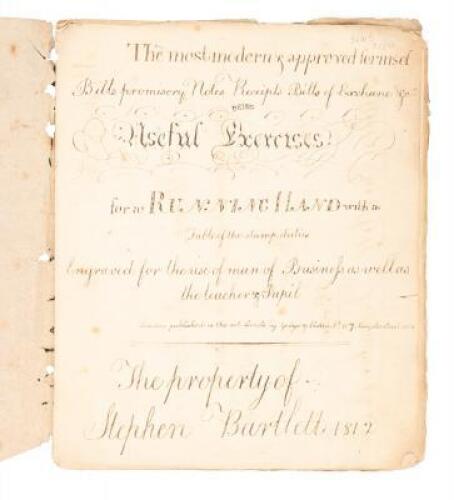 The most modern & approved forms of
Bills promisory Notes Receipts Bills of Exchane &c
BEING
Useful Exercises
for a RUNNING HAND with a
Table of the stamp duties
Engraved for the use of men of Business as well as
the teacher & Pupil
London published as the act directs by
The property of
Stephen Bartlett 1812